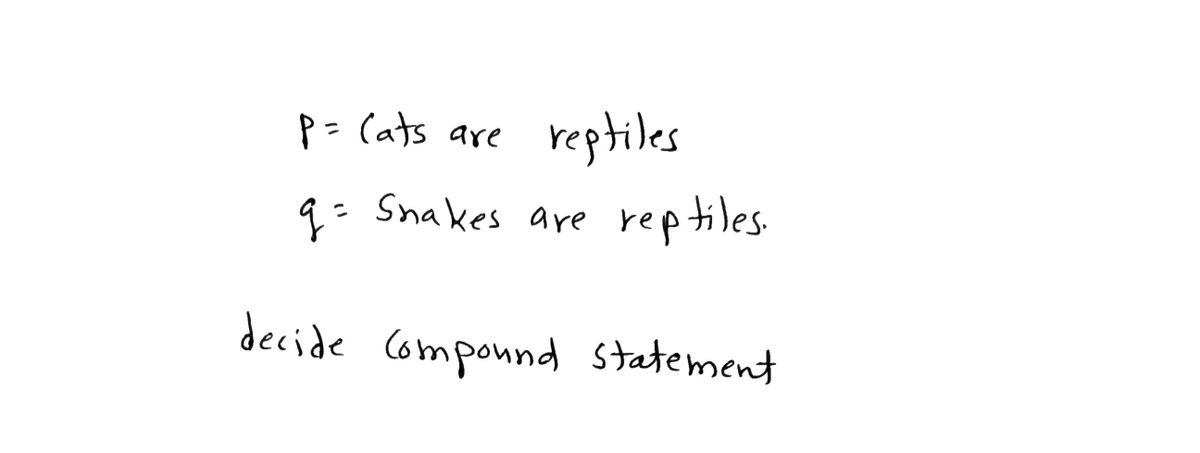 p = Cats are reptiles
q = Snakes are reptiles.
decide compound statement